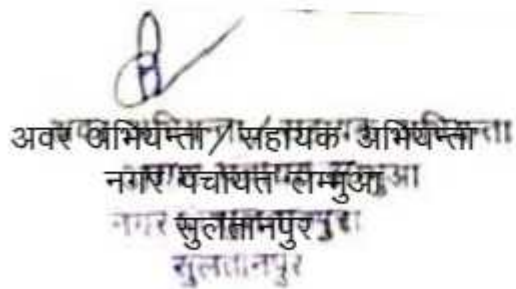 अवर अभियन्ता / सहायक अभियन्ता
नगर पंचायत लम्भुआ
सुलतानपुर
सुलतानपुर